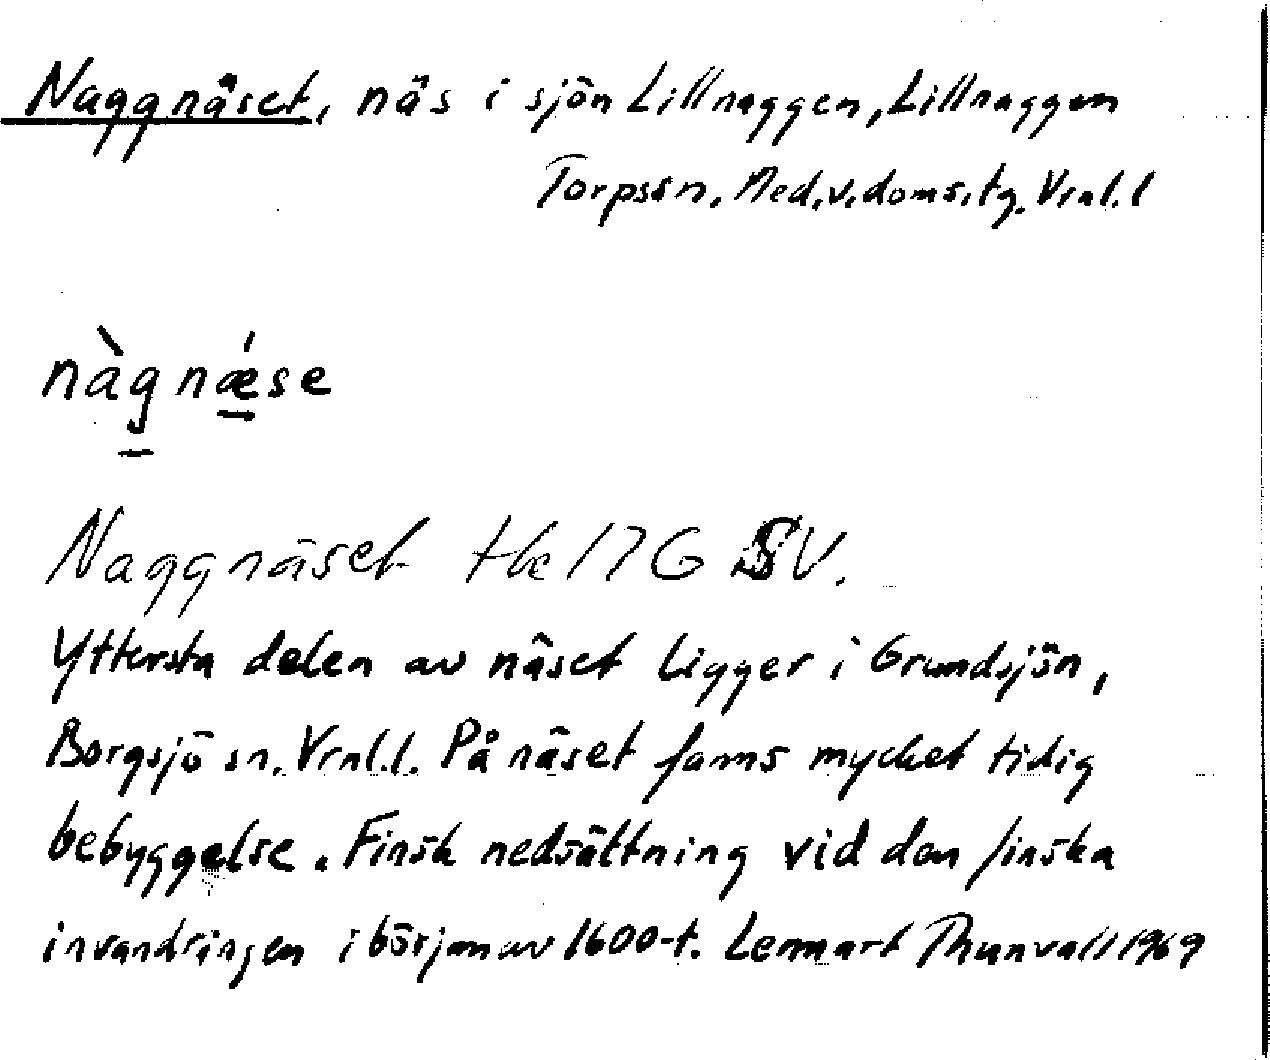 Naggnäset, näs i sjön Lillnaggen, Lillnaggen
Torps sn. Med. v. doms. tg. Vrnl. l
nàgnǽse
Naggnäset tk 17G SV.
Yttersta delen av näset ligger i Grundsjön,
Borgsjö sn. Vrnl.l. På näset fanns mycket tidig
bebyggelse. Finsk nedsättning vid den finska
invandringen i början av 1600-t. Lennart Thunvall 1969